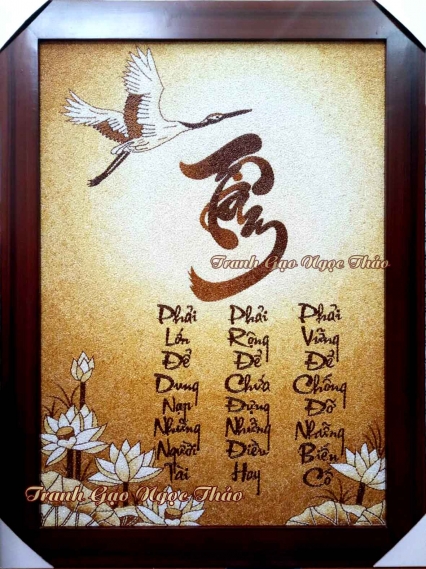 Tâm
Tranh Gạo Ngọc Thảo
Phải
Lớn
Để
Dung
Nạp
Những
Người
Tài
Phải
Rộng
Để
Chứa
Đựng
Những
Điều
Hay
Phải
Vững
Để
Chống
Đỡ
Những
Biến
Cố
Tranh Gạo Ngọc Thảo